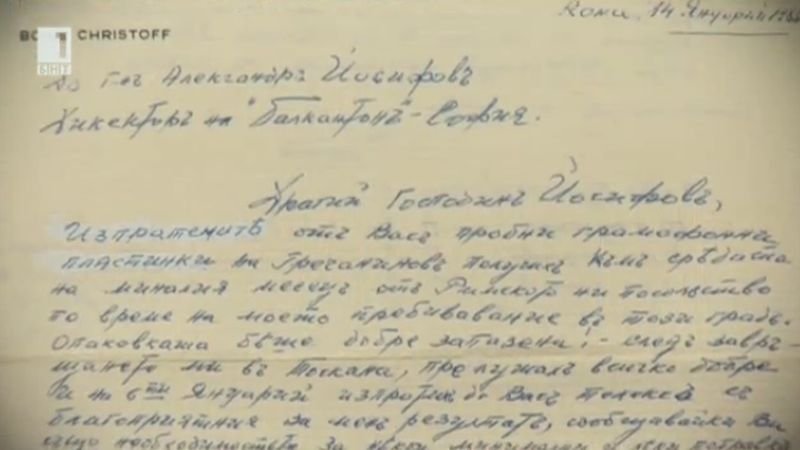 Roma, 14 Януарий 19
BO CHRISTOFF
1
БНТ
До Г-нъ Александъръ Йосифовъ
Директоръ на "Балкантонъ" - София.
Драгий Господинъ Йосифовъ,
Изпратенитѣ отъ Васъ пробни грамофонни
пластинки на Гречаниновъ получихъ къмъ срѣдата
на миналия месецъ отъ Римското ни посолство
по време на моето пребивавание въ този градъ.
Опаковката бѣше добре запазена; - следъ завръ-
щането ми въ Тоскана, преслушалъ всичко добре
и на 6ти Януарий изпратихъ до Васъ телексъ съ
благоприятния за мен резултатъ, сообщавайки Ви
също необходимостьта за нѣкои минимални